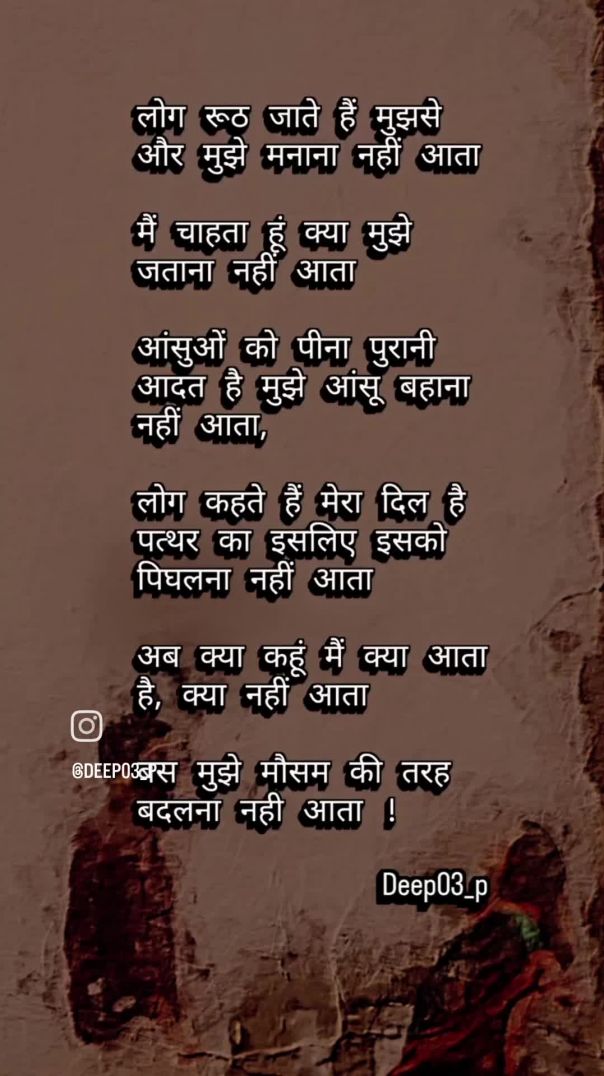 लोग रूठ जाते हैं मुझसे
और मुझे मनाना नहीं आता
मैं चाहता हूं क्या मुझे
जताना नहीं आता
आंसुओं को पीना पुरानी
आदत है मुझे आंसू बहाना
नहीं आता,
लोग कहते हैं मेरा दिल है
पत्थर का इसलिए इसको
पिघलना नहीं आता
अब क्या कहूं मैं क्या आता
है, क्या नहीं आता
@DEEP03_P
बस मुझे मौसम की तरह
बदलना नही आता !
Deep03_p